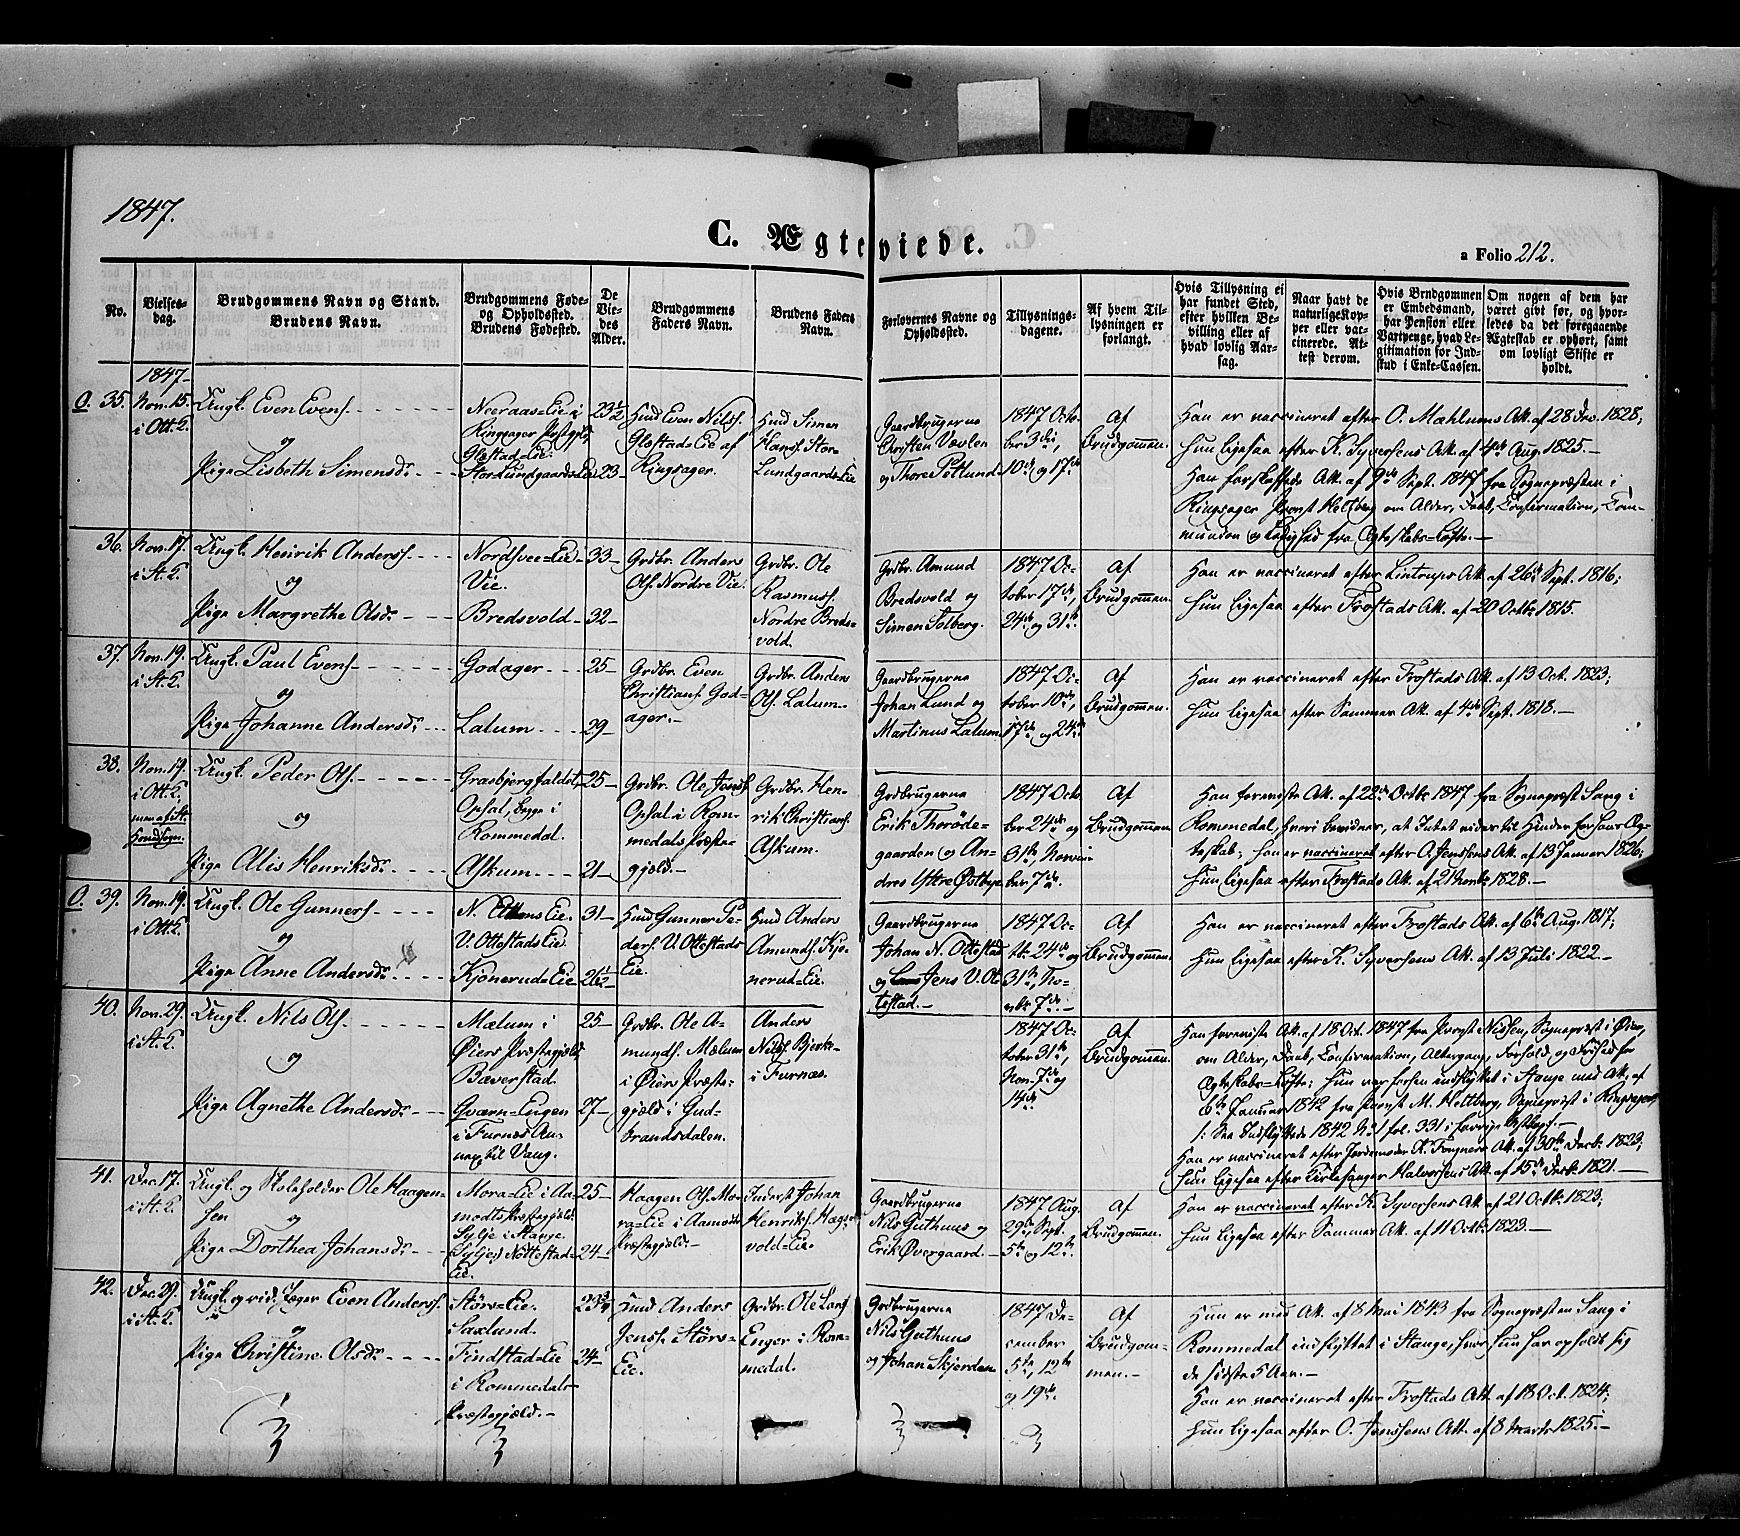 1847.
C. Ægteviede.
a Folio 212.
No.
Vielses-
dag.
Brudgommens Navn og Stand.
Brudens Navn.
Brudgommens Føde-
og Opholdssted.
Brudens Fødested.
De
Vie-
des
Alder.
Brudgommens
Faders Navn.
Brudens Faders
Navn.
Forlovernes Navne og
Opholdssted.
Tillysnings-
dagene.
Af hvem Til-
lysningen er
forlangt.
Hvis Tillysning ei
har fundet Sted,
efter hvilken Be-
villing eller af
hvad lovlig Aar-
sag.
Naar havt de
naturlige Kop-
per eller vac-
cinerede. At-
test derom.
Hvis Brudgommen
er Embedsmand,
har Pension eller
Vartpenge, hvad Le-
gitimation for Ind-
skud i Enke-Cassen.
Om nogen af dem har
været gift før, og hvor-
ledes da det foregaaende
Ægteskab er ophørt, samt
om lovligt Skifte er
holdt.
1847-
O. 35.
Nov. 15.
i Ott. K.
Ungk. Even Evens.
og
Pige Lisbeth Simensdr.
Neeraas=Eie i
Ringsager Prstgjld,
Glæstad=Eie.
Stor Lundgaards=Eie
23½
23
Huusmd Even Nils.
Glæstads Eie af
Ringsager.
Huusmd Simen
Hans. Stor
Lundgaards=Eie
Gaardbrugerne
Christen Vævlen
og Thore Postlund
1847 Octo
ber 3die,
10de og 17de
Af
Brudgommen.
Han er vaccineret efter O. Mæhlums Att. af 28 Dec. 1828;
Hun ligesaa efter K. Syversens Att. af 4de Aug. 1825.
Han forskaffede Att. af 9de Sept. 1847 fra Sognepræsten i
Ringsager Provst Heltberg om Alder, Daab, Confirmation, Com-
munion og Ledighed fra Ægteskabs=Løfte.
36.
Nov. 17.
i St. K.
Ungk. Henrik Anders.
og
Pige Margrethe Olsdr.
Nordsvee=Eie
Vie.
Bredsvold
33
32
Grdbr. Anders
Ols. Nordre Vie.
Grdbr. Ole
Rasmus.
Nordre Breds-
vold.
Grdbr. Amund
Bredsvold og
Simen Solberg.
1847 Oc-
tober 17de,
24de og 31te.
Af
Brudgommen.
Han er vaccineret efter Lintrups Att. af 26de Sept. 1816;
Hun ligesaa efter Frostads Att. af 20 Octbr. 1815.
37.
Nov. 19.
i St. K.
Ungk. Paul Evens.
og
Pige Johanne Andersdr.
Godager
Lalum
25
29
Grdbr. Even
Christians. God-
ager.
Grdbr. Anders
Ols. Lalum
Gaardbrugerne
Johan Lund og
Martinus Lalum
1847 Oc-
tober 10de,
17de og 24de
Af
Brudgommen.
Han er vaccineret efter Frostads Att. af 13 Oct. 1823;
Hun ligesaa efter Sammes Att. af 4de Sept. 1818.
38.
Nov. 19.
i Ott. K.
Ungk. Peder Ols.
og
Pige Alis Henriksdr.
Grasbjergfaldet,
Opsal, begge i
Rommedal.
Askum
25
21
Grdbr. Ole Jons.
Opsal i Rom-
medals Præste-
gjeld.
Grdbr. Hen-
rik Christians.
Askum.
Grdbrugerne
Erik Thorøde-
gaarden og An-
dres Yttre Østbye
1847 Octo
ber 24de og
31te, Novem
ber 7de.
Af
Brudgommen
Han foreviste Att. af 22de Octbr. 1847 fra Sognepræst Sang i
Rommedal, hvori bevidnes, at Intet vides til Hinder for hans Æg-
teskab; han er vaccineret efter O. Jenssens Att. af 13 Januar 1826;
Hun ligesaa efter Frostads Att. af 21 Novbr. 1828.
O. 39.
Nov. 19.
i Ott. K.
Ungk. Ole Gunners.
og
Pige Anne Andersdr.
V. Ottestads Eie.
Kjonerud=Eie
31
26½
Huusmd Gunner Pe-
ders. V. Ottestads
Eie.
Huusmd Anders
Amunds. Kjo-
nerud=Eie.
Gaardbrugerne
Johan N. Ottestad
og Jens V. Ot-
testad.
1847 Oc-
tbr. 24de og
31te, No-
vbr. 7de.
Af
Brudgommen.
Han er vaccineret efter Frostads Att. af 6te Aug. 1817;
Hun ligesaa efter K. Syversens Att. af 13 Juli 1822.
40.
Nov. 29.
i St. K.
Ungk. Nils Ols.
og
Pige Agnethe Andersdr.
Mælum i
Øiers Præstegjeld
Bæverstad.
Qværn=Eugen
i Furnæs An-
nex til Vang.
25
27
Grdbr. Ole A-
munds. Mælum
i Øiers Præste-
gjeld i Gud-
brandsdalen.
Anders
Nils. Bjerke
i Furnæs.
1847 Oc-
tober 31te,
Nov. 7de og
14de
Af
Brudgommen.
Han foreviste Att. af 18 Oct. 1847 fra Provst Nissen, Sognepræst i Øier,
om Alder, Daab, Confirmation, Altergang, Forhold og Frihed for
Ægteskabs=Løfte; Hun var forhen indflyttet i Stange med Att. af
6te Januar 1842 fra Provst M. Heltberg, Sognepræst i Ringsager,
Han er vaccineret efter Jordemoder K. Tongners Att. af 30te Decbr. 1823;
Hun ligesaa efter Kirkesanger Halvorsens Att. af 15de Decbr. 1821.
41.
Dec. 17.
i St. K.
Ungk. og Skoleholder Ole Haagen-
sen
og
Pige Dorthea Johansdr.
Mora=Eie i Aa-
modts Præstegjeld.
Sylje i Stange.
Eie.
25
24
Haagen Ols. Mo-
ra=Eie i Aamodts
Præstegjeld.
Inderst Johan
Henriks. Hage-
vold=Eie.
Gaardbrugerne
Nils Guthuus og
Erik Øvergaard.
1847 Aug.
29de, Sept.
5te og 12te.
Af
Brudgommen.
Han er vaccineret efter K. Syversens Att. af 21 Octbr. 1823;
Hun ligesaa efter Sammes Att. af 11 Octbr. 1823.
42.
Dec. 29.
i St. K.
Ungk. og rid. Jæger Even Anders.
og
Pige Christine Olsdr.
Størs=Eie.
Saxlund.
Findstad=Eie
i Rommedals
Præstegjeld.
23¾
24
Huusmd Anders
Jens. Størs=
Eie.
Grdbr. Ole Lars.
Enger i Rom-
medal.
Grdbrugerne
Nils Guthuus
og Johan Skjerden
1847 De-
cember
5te, 12te
og 19de.
Af
Brudgom-
men.
Han er med Att. af 8 Mai 1843 fra Sognepræsten Sang i
Rommedal indflyttet i Stange, hvor hun har opholdt sig
de sidste 5 Aar.
Han er vaccineret efter Frostads Att. af 18 Oct. 1824;
Hun ligesaa efter O. Jenssens Att. af 8 Marts 1825.